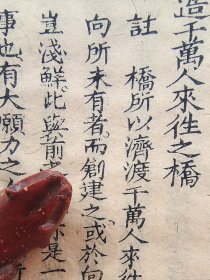 造千萬人來徃之橋
註　橋所以濟渡千萬人來徃
向所未有者而創建之或於向
豈淺鮮此與前
是一
事也有大願力之